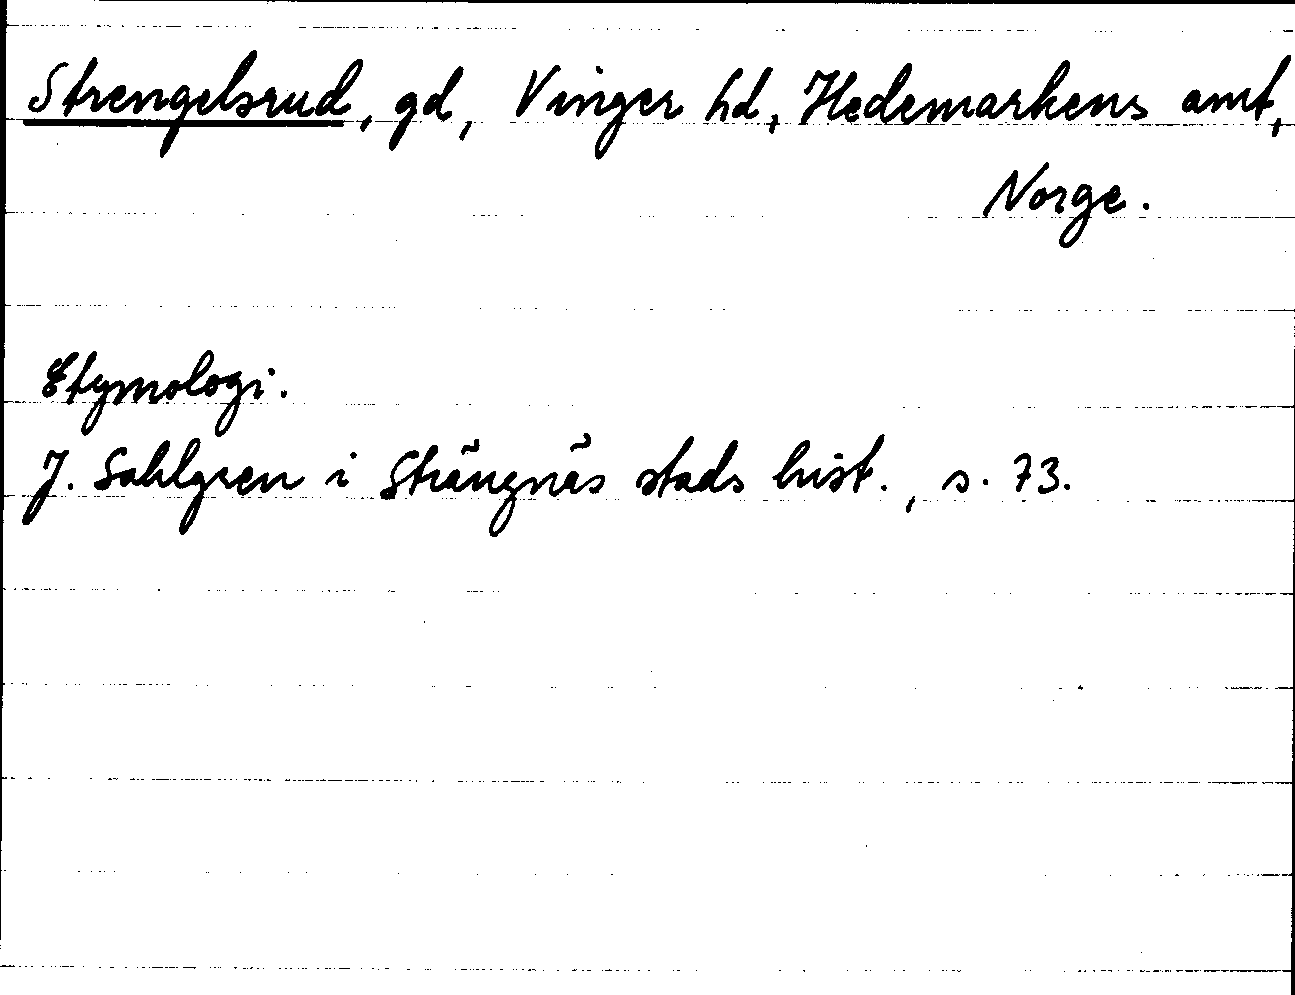 Strengelsrud, gd, Vinger hd, Hedemarkens amt,
Norge.
Etymologi.
J. Sahlgren i Strängnäs stads hist., s. 73.